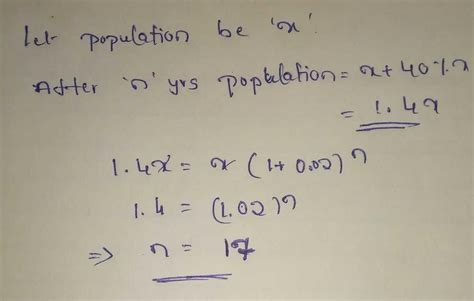 Let population be 'x'.
After 'n' yrs population = x + 40% x
= 1.4x
1.4x = x (1 + 0.02)^n
1.4 = (1.02)^n
⇒ n = 17